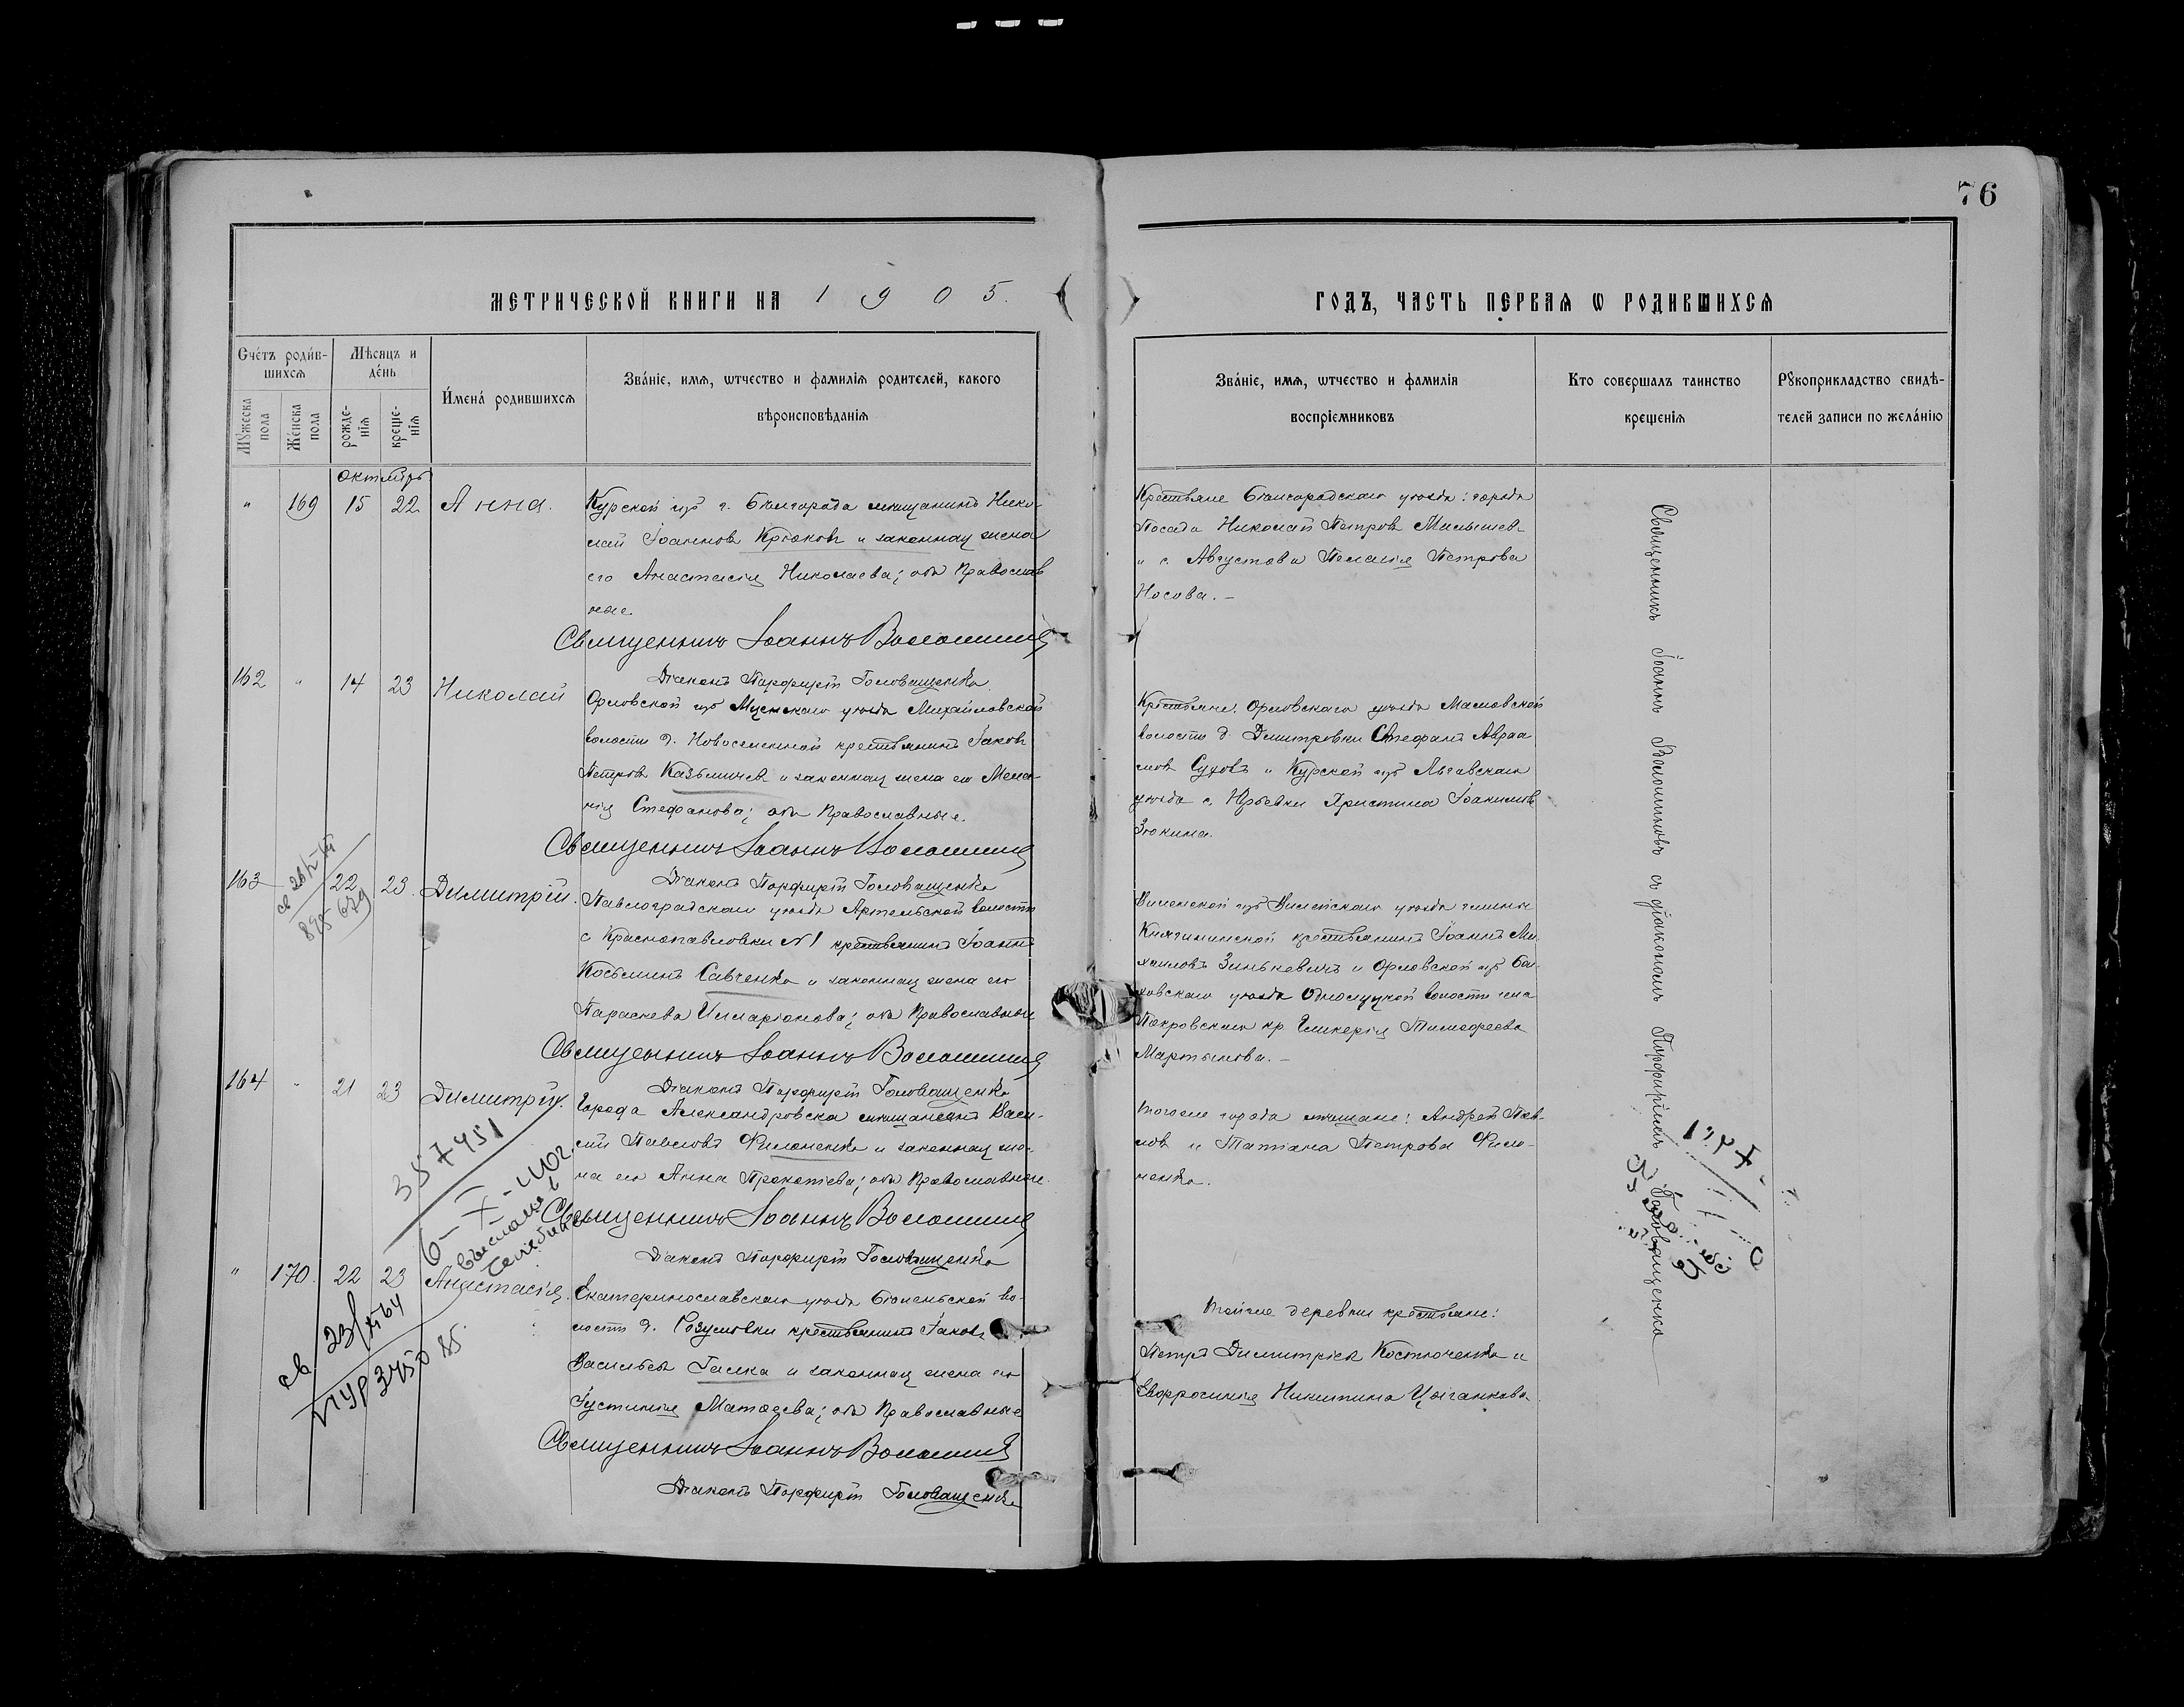 76
МЕТРИЧЕСКОЙ КНИГИ НА 1905.
ГОДЪ, ЧАСТЬ ПЕРВАѦ Ѡ РОДИВШИХСѦ
Счéтъ роди́в-
шихсѧ
Мѣсяцъ и
дéнь
Мꙋжеска
пола
Жéнска
пола
рожде-
нїѧ
креще-
нїѧ
И́менá родившихсѧ
Звáнїе, имѧ, ѡтчество и фамилїѧ родителей, какого
вѣроисповѣданїѧ
Звáнїе, имѧ, ѡтчество и фамилїѧ
воспрїемниковъ
Кто совершалъ таинство
крещенїѧ
Рꙋкоприкладство свидѣ-
телей записи по желáнїю
Октябрь
" 169 15 22 Анна.
Курской губ г. Бѣлгорода мѣщанинъ Нико-
лай Іоанновъ Крюковъ и законная жена
его Анастасія Николаева; оба Православ
ные.
Священникъ Іоаннъ Волошинов
Діаконъ Порфирій Головащенко
Крестьяне Бѣлгородскаго уѣзда: города
Посада Николай Петровъ Милышев
и с. Августова Пелагія Петрова
Носова. –
162 " 14 23 Николай
Орловской губ Мценскаго уѣзда Михайловской
волости д. Новоселенной крестьянинъ Іаковъ
Петровъ Казьмичев и законная жена его Мела-
нія Стефанова; оба Православные.
Священникъ Іоаннъ Волошинов
Діаконъ Порфирій Головащенко
Крестьяне: Орловскаго уѣзда Масловской
волости д. Дмитровки Стефанъ Авраа
мов Суховъ и Курской губ Льговскаго
уѣзда с. Юрьевки Христина Іоакимова
Зюкина.
163 22 23. Димитрій.
Павлоградскаго уѣзда Артельской волости
с Краснопавловки №1 крестьянинъ Іоаннъ
Косьминъ Савченко и законная жена его
Параскева Иларіонова; оба Православные
Священникъ Іоаннъ Волошинов
Діаконъ Порфирій Головащенко
Виленской губ Вилейскаго уѣзда гмины
Княгининской крестьянинъ Іоаннъ Ми-
хаиловъ Зинькевичъ и Орловской губ Бол-
ховскаго уѣзда Однолуцкой волости села
Покровскаго кр. Гликерія Тимофеева
Мартынова. –
164 " 21 23 Димитрій.
Города Александровска мѣщанинъ Васи-
лій Павловъ Филоненко и законная же-
на его Анна Прокопіева; оба Православные.
Священникъ Іоаннъ Волошинов
Діаконъ Порфирій Головащенко
Того же города мѣщане: Андрей Пав-
лов и Татіана Петрова Фило-
ненко.
387451
" 170. 22 23 Анастасія.
Екатеринославскаго уѣзда Бѣленьской во-
лости д. Розумовки крестьянинъ Іаковъ
Васильевъ Галка и законная жена его
Іустинія Матѳеева; оба Православные
Священникъ Іоаннъ Волошинов
Діаконъ Порфирій Головащенко
Той же деревни крестьяне:
Петръ Димитріев Костюченко и
Евфросинія Никитина Цыганкова
св 23/XI 64
Священникъ Іоаннъ Волошиновъ съ діакономъ Порфиріемъ Головащенко